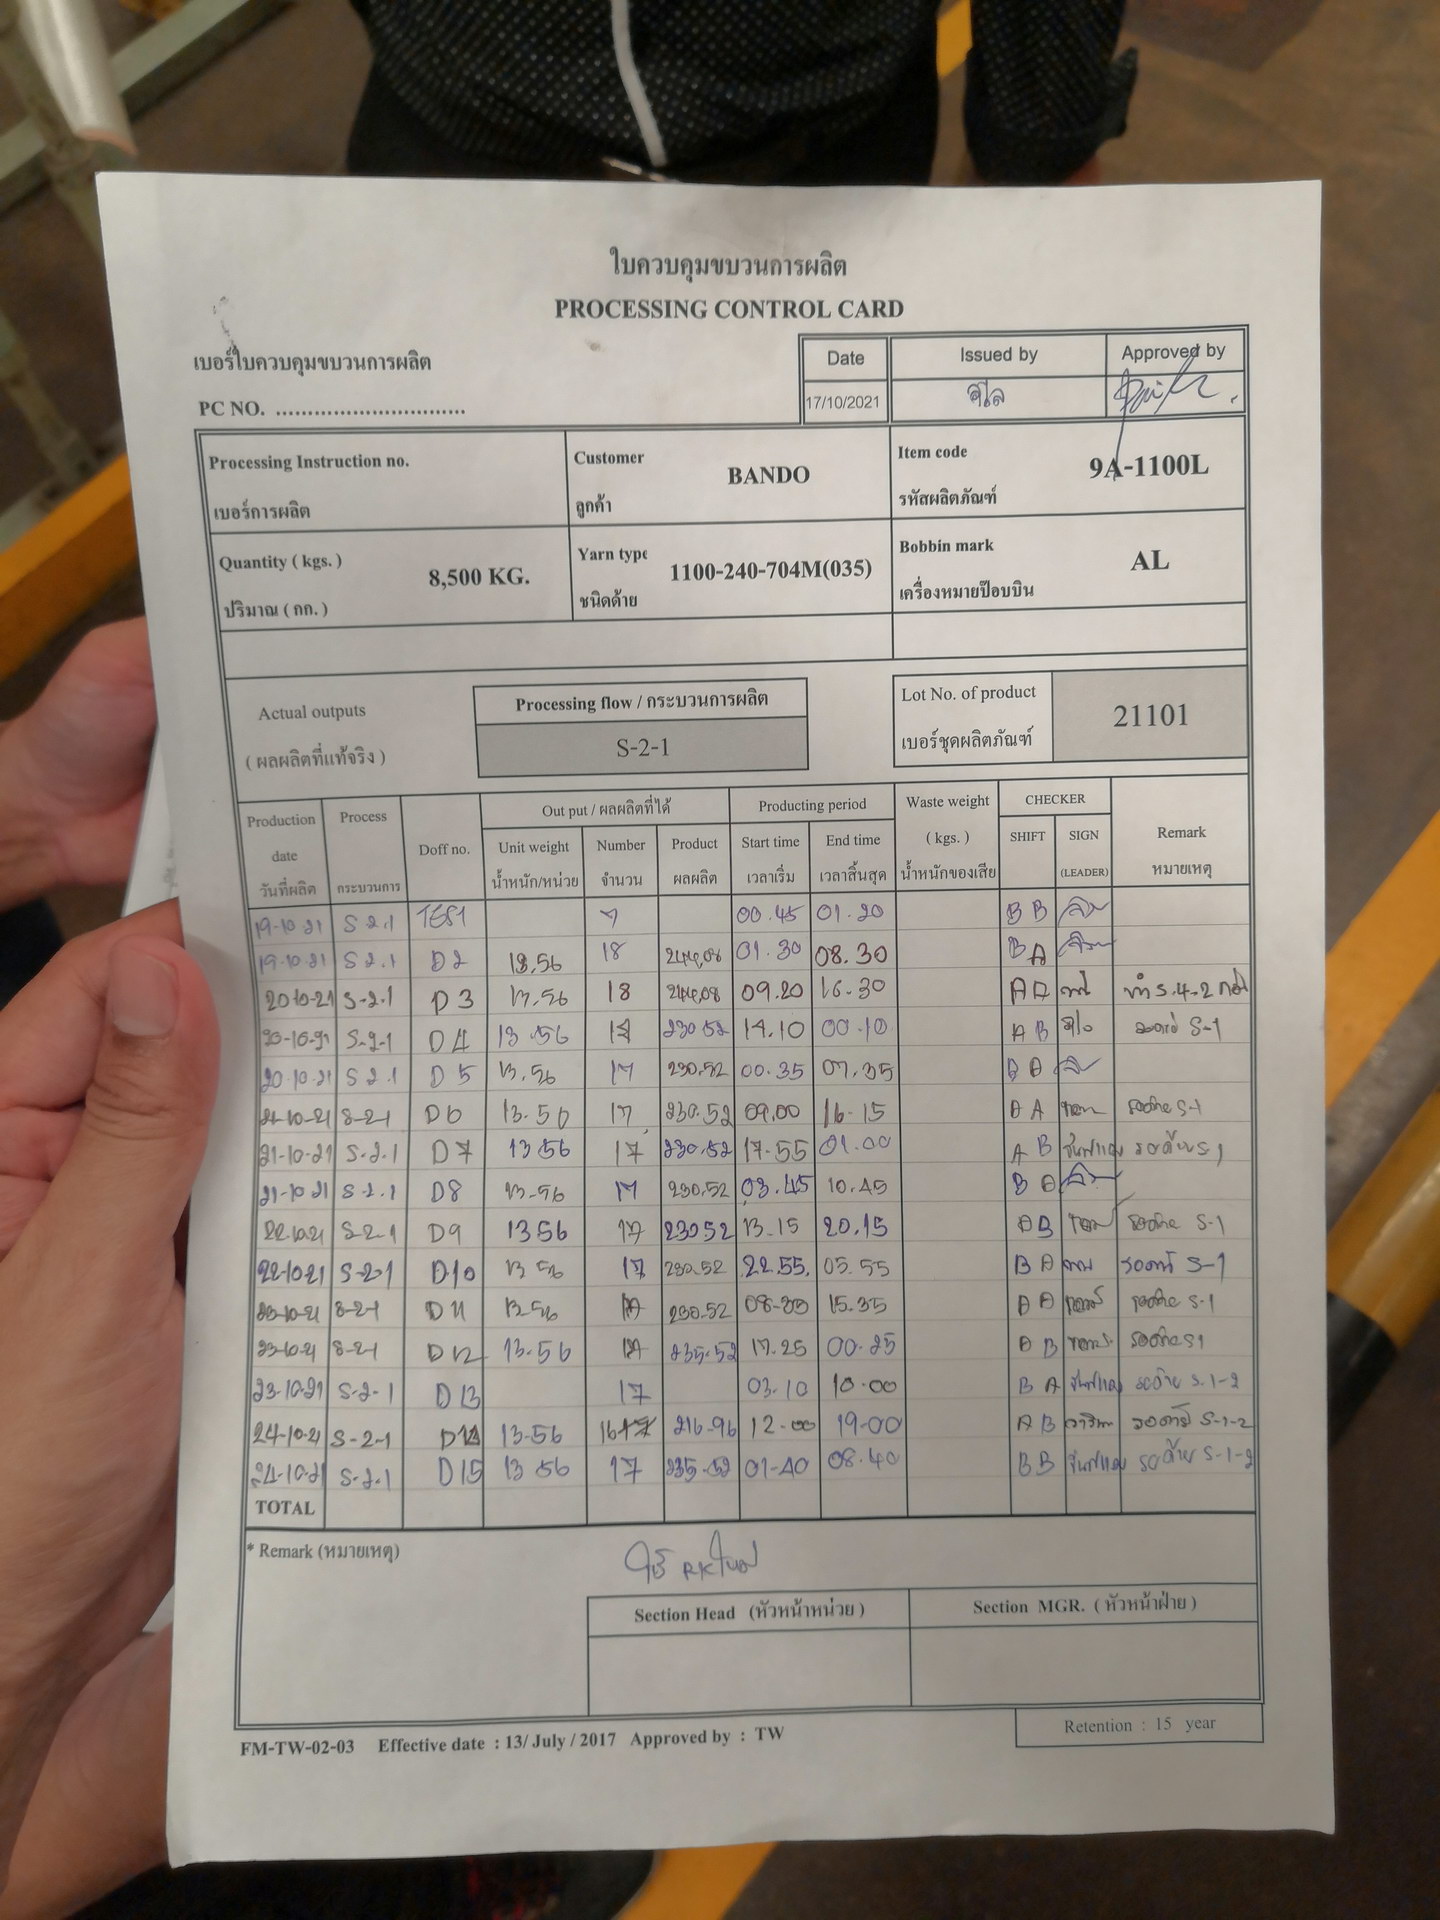 ใบควบคุมขบวนการผลิต
PROCESSING CONTROL CARD
เบอร์ใบควบคุมขบวนการผลิต
PC NO. ..............................
Date Issued by Approved by
17/10/2021
Processing Instruction no.
เบอร์การผลิต
Customer BANDO
ลูกค้า
Item code 9A-1100L
รหัสผลิตภัณฑ์
Quantity ( kgs. ) 8,500 KG.
ปริมาณ ( กก. )
Yarn type 1100-240-704M(035)
ชนิดด้าย
Bobbin mark AL
เครื่องหมายป๊อบบิน
Actual outputs
( ผลผลิตที่แท้จริง )
Processing flow / กระบวนการผลิต
S-2-1
Lot No. of product 21101
เบอร์ชุดผลิตภัณฑ์
Production date วันที่ผลิต Process กระบวนการ Doff no. Out put / ผลผลิตที่ได้ Producting period Waste weight ( kgs. ) น้ำหนักของเสีย CHECKER Remark หมายเหตุ
Unit weight Number Product Start time End time SHIFT SIGN
น้ำหนัก/หน่วย จำนวน ผลผลิต เวลาเริ่ม เวลาสิ้นสุด (LEADER)
19-10-21 S-2.1 TEST 7 00.45 01.20 B B
19-10-21 S-2.1 D2 13.56 18 244.08 01.30 08.30 B A
20-10-21 S-2.1 D3 13.56 18 244.08 09.20 16.30
20-10-21 S-2-1 D4 13.56 17 230.52 00.10 A B S-1
20-10-21 S-2.1 D5 13.56 17 230.52 00.35 07.35 B A
21-10-21 S-2-1 D6 13.56 17 230.52 09.00 16-15 A A S-1
21-10-21 S-2.1 D7 13.56 17 230.52 17-55 01.00 A B รอด้าย S-1
21-10-21 S-2.1 D8 13.56 17 230.52 03.45 10.45 B A
22-10-21 S-2-1 D9 13.56 17 230.52 13.15 20.15 A B S-1
22-10-21 S-2-1 D10 13.56 17 230.52 22.55 05.55 B A S-1
23-10-21 S-2-1 D11 13.56 17 230.52 15.35 A A S-1
23-10-21 S-2-1 D12 13.56 17 235.52 17.25 00.25 A B S-1
23-10-21 S-2-1 D13 17 03.10 10.00 B A รอด้าย S-1-2
24-10-21 S-2-1 D14 13.56 16 216.96 12.00 19-00 A B S-1-2
24-10-21 S-2.1 D15 13.56 17 235.52 01-40 08.40 B B รอด้าย S-1-2
TOTAL
* Remark (หมายเหตุ)
Section Head (หัวหน้าหน่วย) Section MGR. ( หัวหน้าฝ่าย )
FM-TW-02-03 Effective date : 13/ July / 2017 Approved by : TW
Retention : 15 year